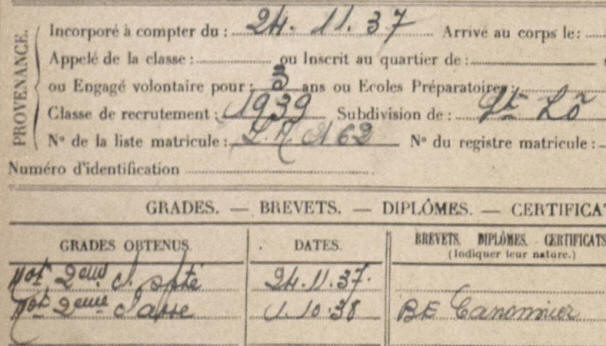 PROVENANCE.
Incorporé à compter du : 24. 11. 37 Arrivé au corps le :
Appelé de la classe : ou Inscrit au quartier de :
ou Engagé volontaire pour : 3 ans ou Ecoles Préparatoires :
Classe de recrutement : 1939 Subdivision de : St Lô
N° de la liste matricule : 162 N° du registre matricule :
Numéro d'identification
GRADES. — BREVETS. — DIPLÔMES. — CERTIFICA
GRADES OBTENUS. DATES. BREVETS, DIPLÔMES, CERTIFICATS
(Indiquer leur nature.)
Mot 2eme 24.11.37.
Mot 2eme 1.10.38 BE Canonnier